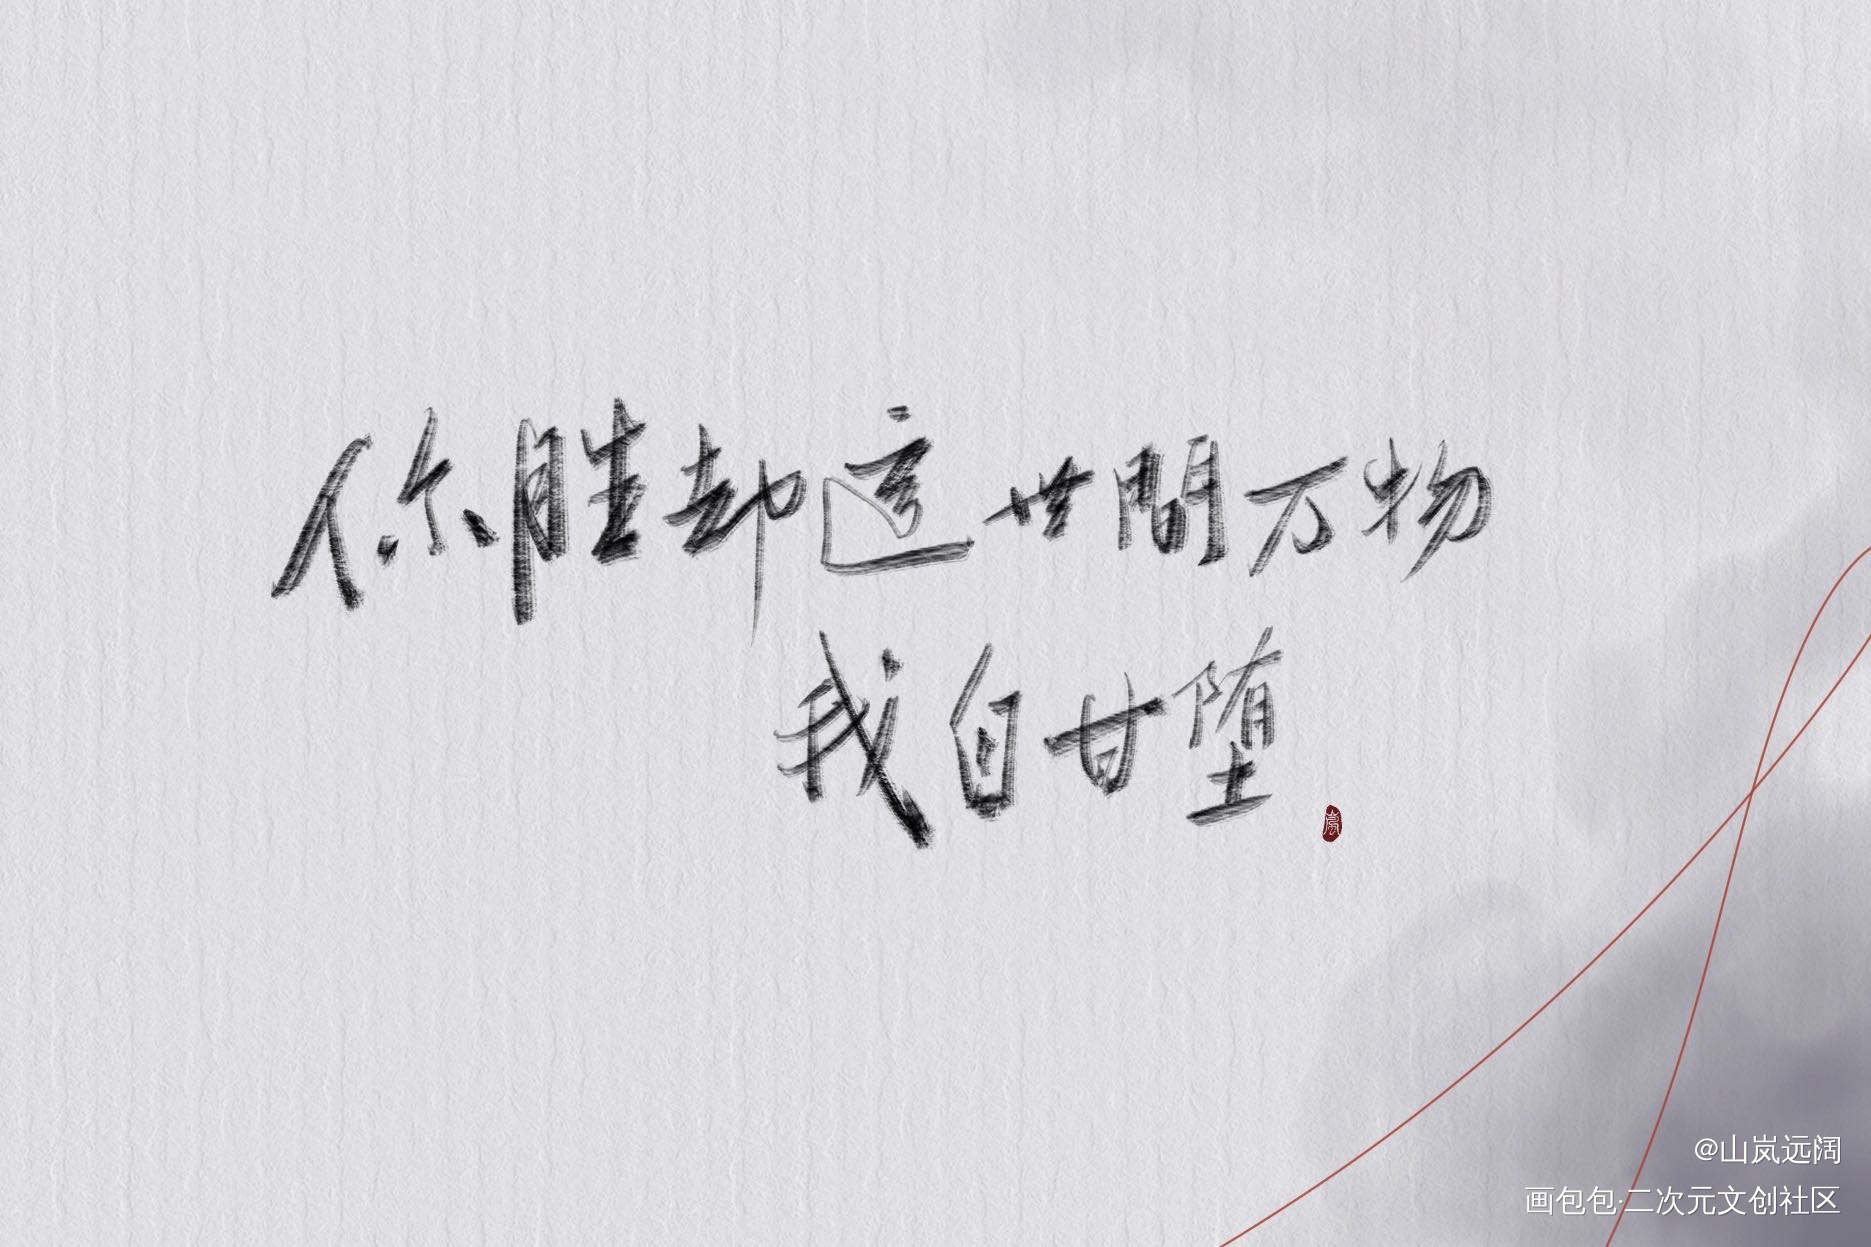 你胜却这世間万物
我自甘堕
@山岚远阔
画包包·二次元文创社区